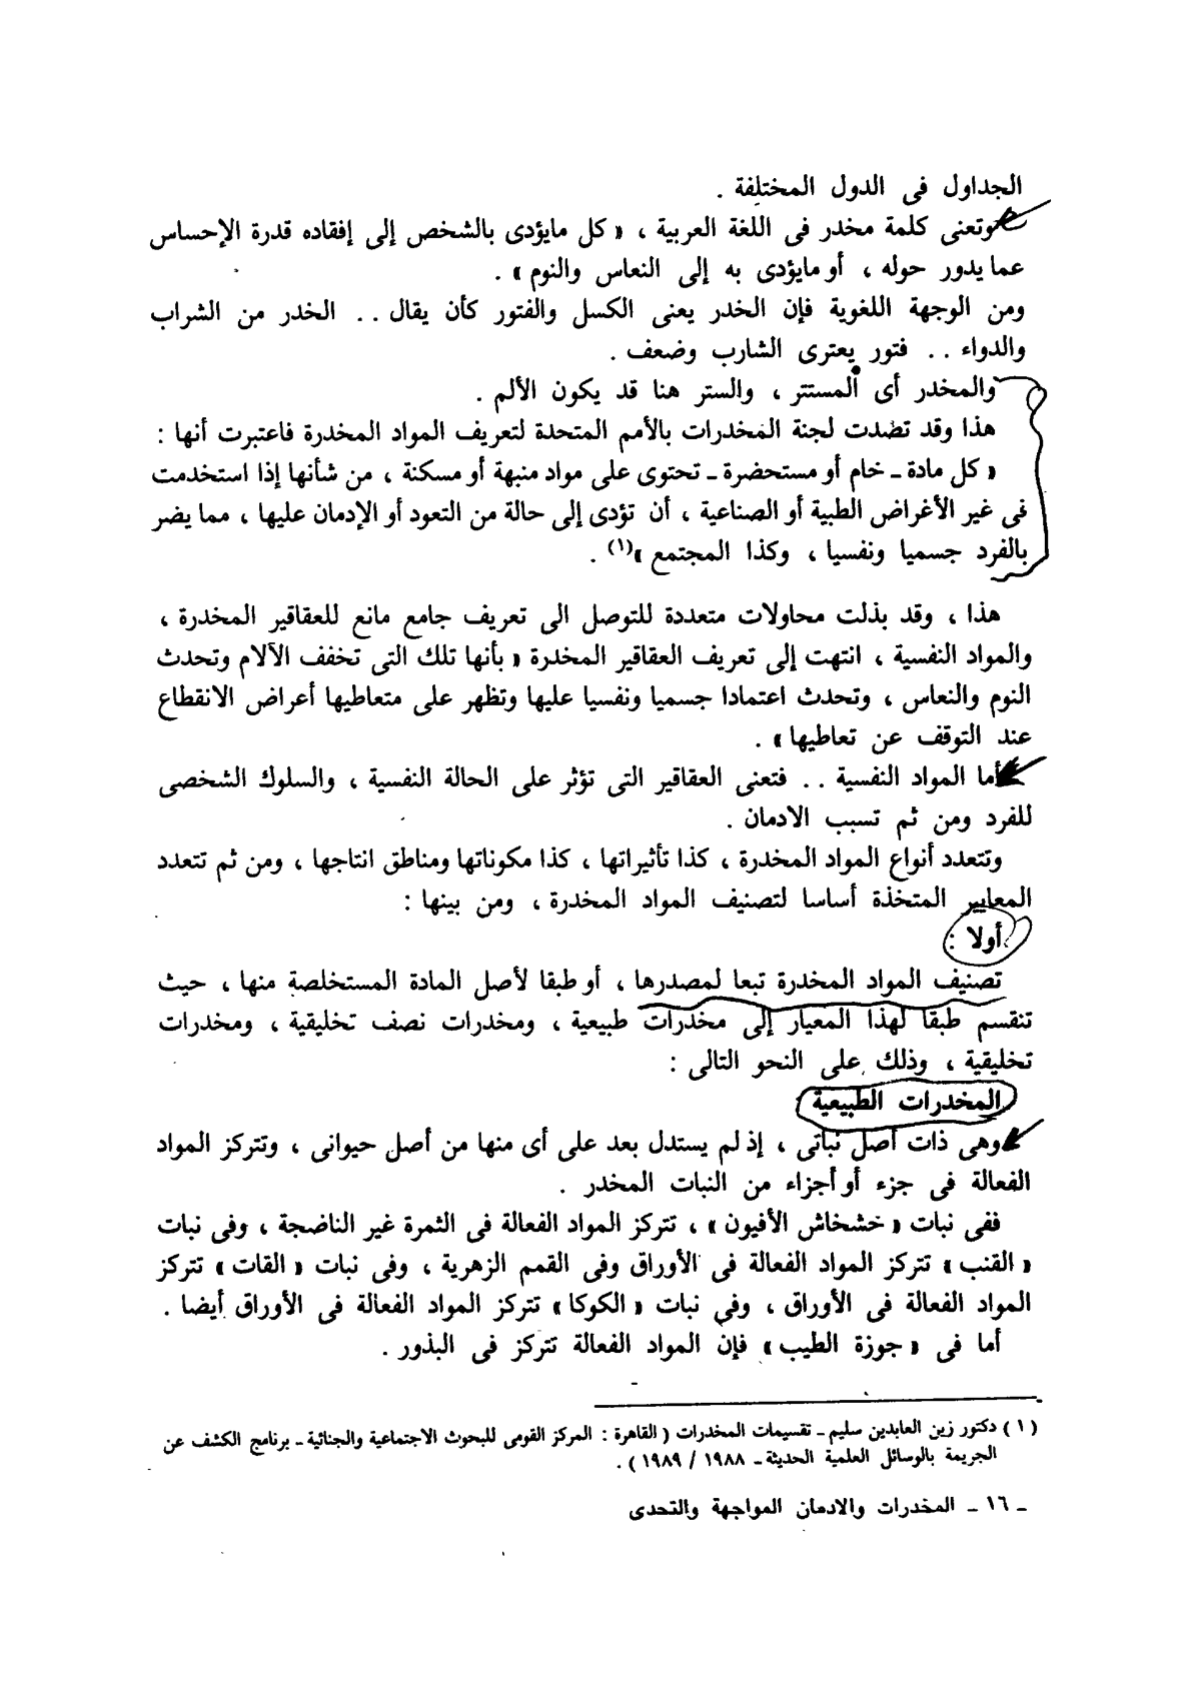 الجداول فى الدول المختلفة .
وتعنى كلمة مخدر فى اللغة العربية ، « كل مايؤدى بالشخص إلى إفقاده قدرة الإحساس
عما يدور حوله ، أو مايؤدى به إلى النعاس والنوم » .
ومن الوجهة اللغوية فإن الخدر يعنى الكسل والفتور كأن يقال .. الخدر من الشراب
والدواء .. فتور يعترى الشارب وضعف .
والمخدر أى المستتر ، والستر هنا قد يكون الألم .
هذا وقد تصدت لجنة المخدرات بالأمم المتحدة لتعريف المواد المخدرة فاعتبرت أنها :
« كل مادة ـ خام أو مستحضرة ـ تحتوى على مواد منبهة أو مسكنة ، من شأنها إذا استخدمت
فى غير الأغراض الطبية أو الصناعية ، أن تؤدى إلى حالة من التعود أو الإدمان عليها ، مما يضر
بالفرد جسميا ونفسيا ، وكذا المجتمع »(١) .
هذا ، وقد بذلت محاولات متعددة للتوصل الى تعريف جامع مانع للعقاقير المخدرة ،
والمواد النفسية ، انتهت إلى تعريف العقاقير المخدرة « بأنها تلك التى تخفف الآلام وتحدث
النوم والنعاس ، وتحدث اعتمادا جسميا ونفسيا عليها وتظهر على متعاطيها أعراض الانقطاع
عند التوقف عن تعاطيها » .
أما المواد النفسية .. فتعنى العقاقير التى تؤثر على الحالة النفسية ، والسلوك الشخصى
للفرد ومن ثم تسبب الادمان .
وتتعدد أنواع المواد المخدرة ، كذا تأثيراتها ، كذا مكوناتها ومناطق انتاجها ، ومن ثم تتعدد
المعايير المتخذة أساسا لتصنيف المواد المخدرة ، ومن بينها :
أولا :
تصنيف المواد المخدرة تبعا لمصدرها ، أو طبقا لأصل المادة المستخلصة منها ، حيث
تنقسم طبقا لهذا المعيار إلى مخدرات طبيعية ، ومخدرات نصف تخليقية ، ومخدرات
تخليقية ، وذلك على النحو التالى :
المخدرات الطبيعية
وهى ذات أصل نباتى ، إذ لم يستدل بعد على أى منها من أصل حيوانى ، وتتركز المواد
الفعالة فى جزء أو أجزاء من النبات المخدر .
ففى نبات « خشخاش الأفيون » ، تتركز المواد الفعالة فى الثمرة غير الناضجة ، وفى نبات
« القنب » تتركز المواد الفعالة فى الأوراق وفى القمم الزهرية ، وفى نبات « القات » تتركز
المواد الفعالة فى الأوراق ، وفى نبات « الكوكا » تتركز المواد الفعالة فى الأوراق أيضا .
أما فى « جوزة الطيب » فإن المواد الفعالة تتركز فى البذور .
( ١ ) دكتور زين العابدين سليم ـ تقسيمات المخدرات ( القاهرة : المركز القومى للبحوث الاجتماعية والجنائية ـ برنامج الكشف عن
الجريمة بالوسائل العلمية الحديثة ـ ١٩٨٨ / ١٩٨٩ ) .
ـ ١٦ ـ المخدرات والادمان المواجهة والتحدى